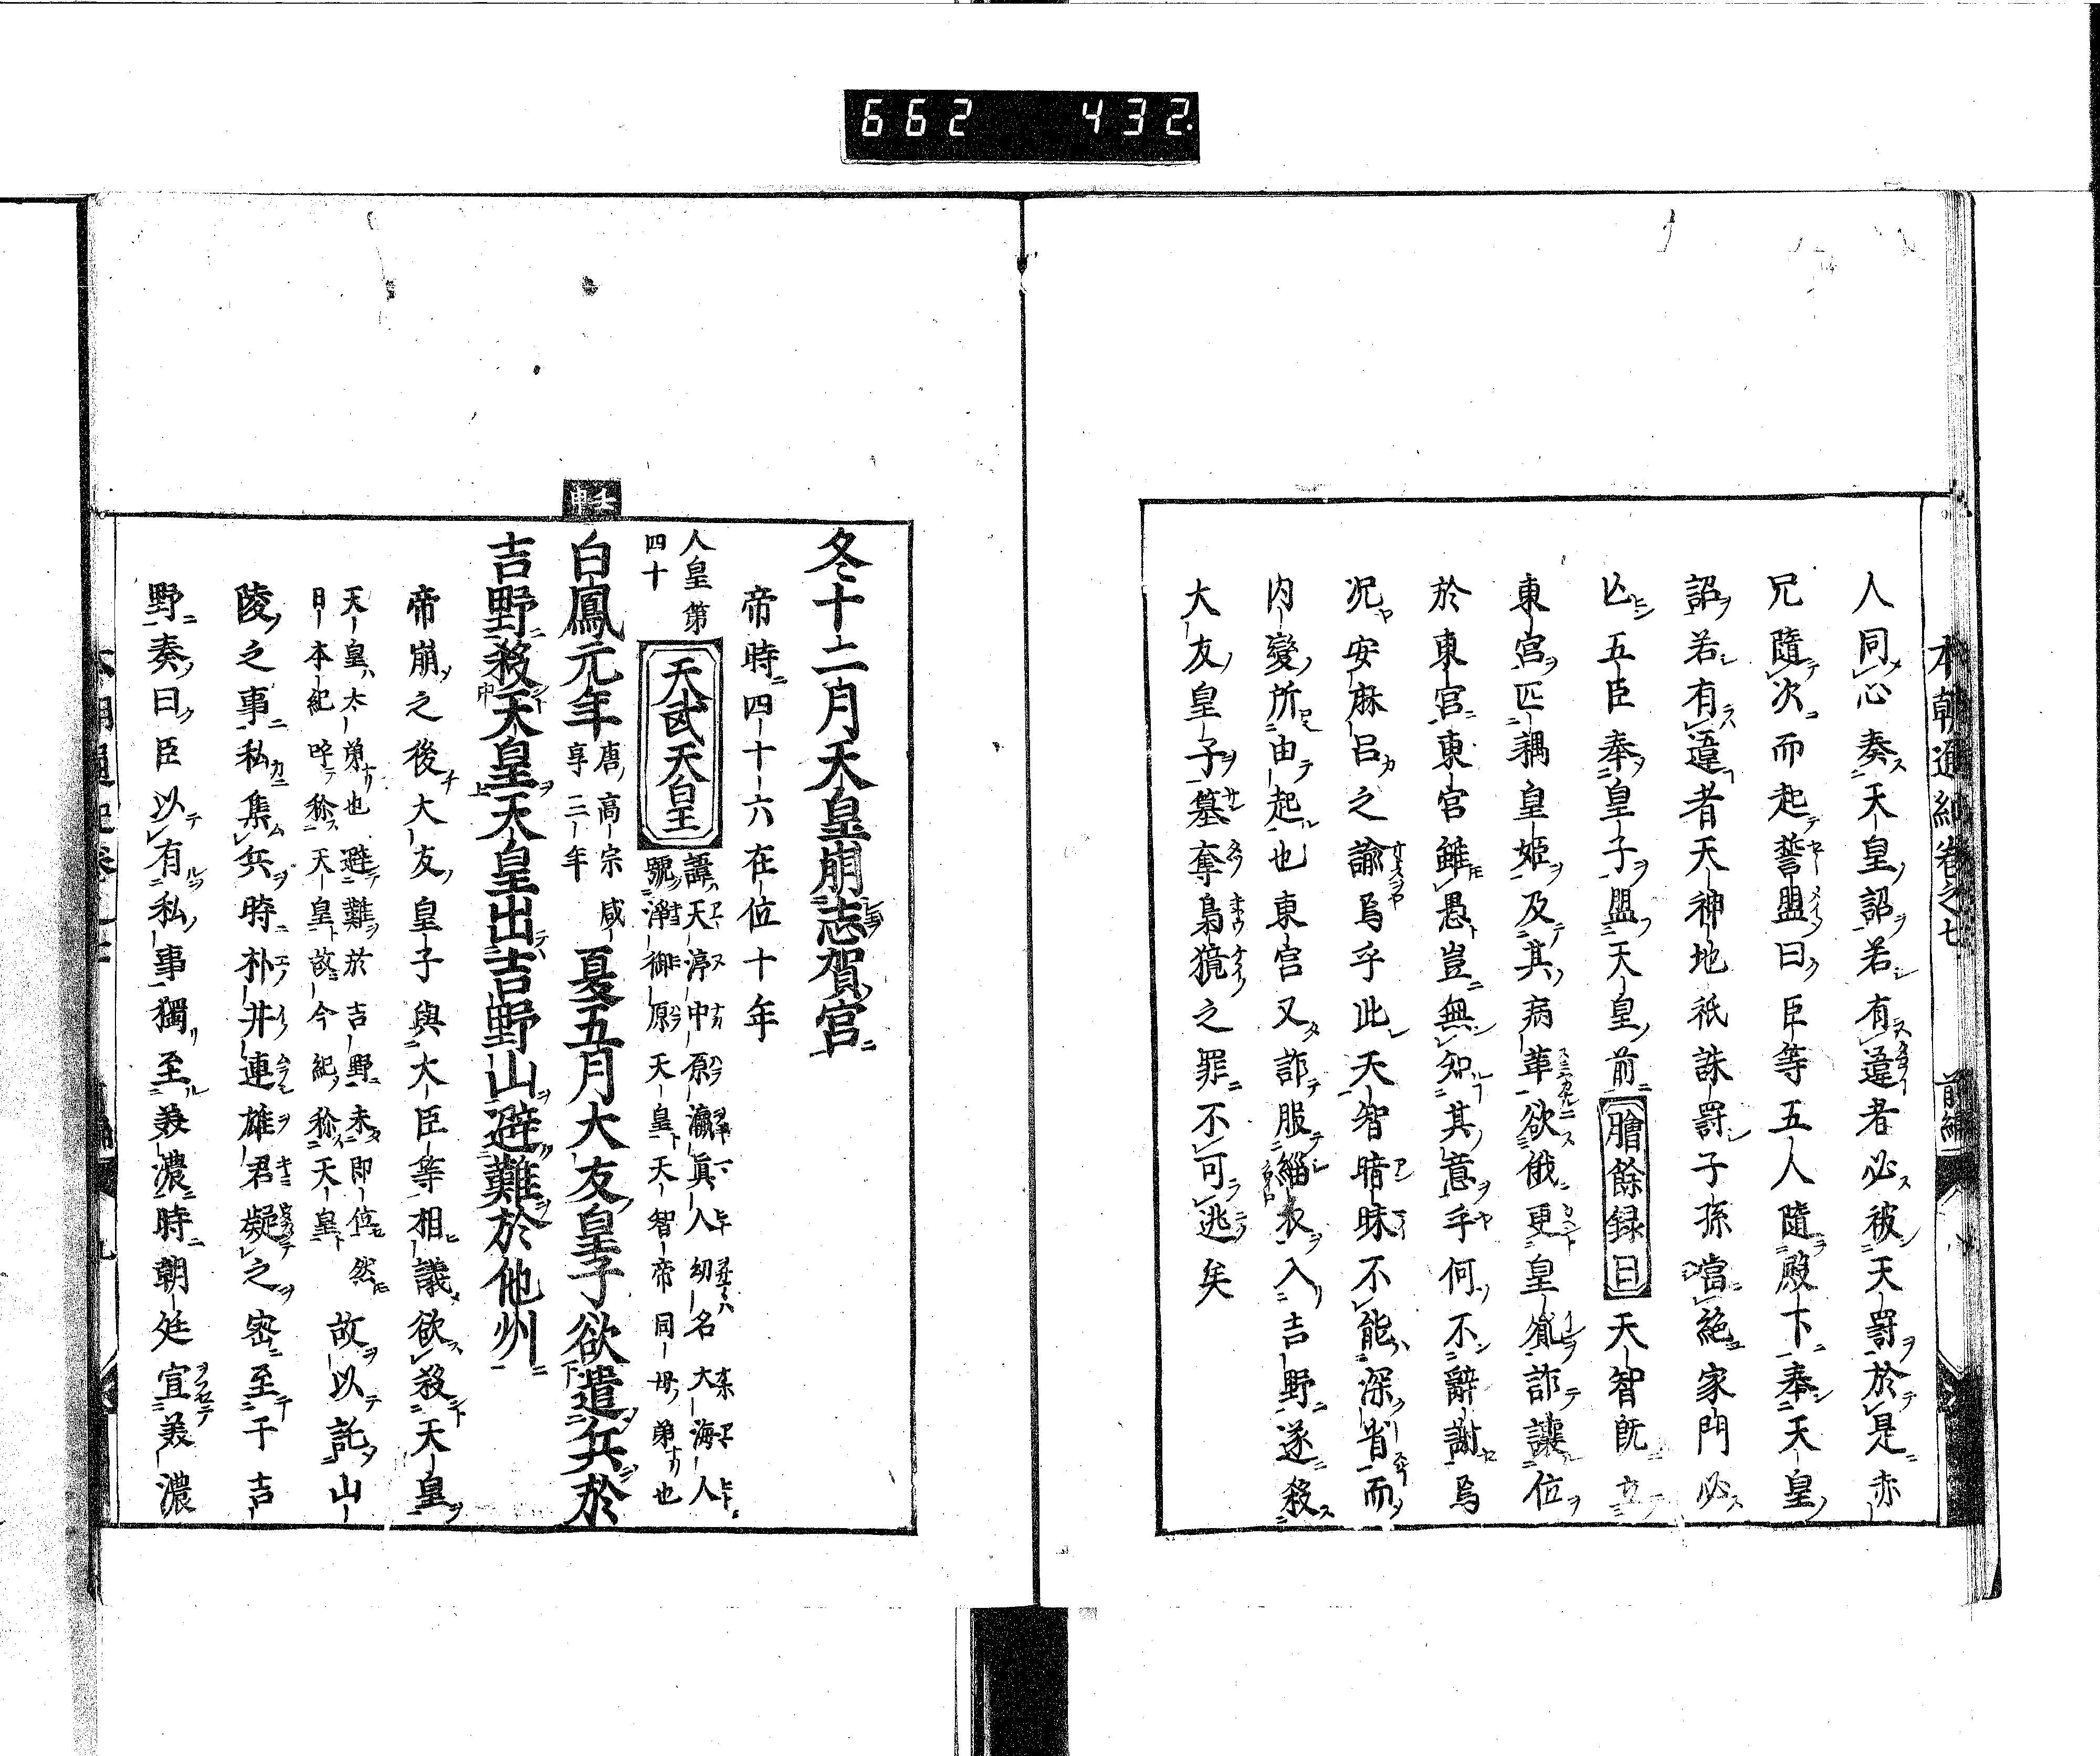 662 432
本朝通紀卷之七 前編 九
人同心奏天皇詔若有違者必被天罰於是赤
兄隨次而起誓盟曰臣等五人隨殿下奉天皇
詔若有違者天神地祇誅罸子孫當絕家門必
亾五臣奉皇子盟天皇前膾餘録曰天智既立
東宮匹耦皇姬及其病革欲俄更皇儲詐讓位
於東宮東宮雖愚豈無知其意乎何不辭謝烏
况安麻呂之諭烏乎此天智暗昧不能深省而
內變所由起也東宮又詐服緇衣入吉野遂殺
大友皇子墓奪梟獍之罪不可逃矣
冬十二月天皇崩志賀宮
帝時四十六在位十年
人皇第四十 天武天皇 諱天渟中原瀛眞人幼名大海人
號淨御原天皇天智帝同母弟也
白鳳元年 唐高宗咸享二年 夏五月大友皇子欲遣兵於
吉野殺天皇天皇出吉野山避難於他州
帝崩之後大友皇子與大臣等相議欲殺天皇
天皇太弟也避難於吉野未即位然
日本紀呼稱天皇故今紀稱天皇 故以託山
陵之事私集兵時朴井連雄君疑之密至于吉
野奏曰臣以有私事獨至美濃時朝廷宣美濃